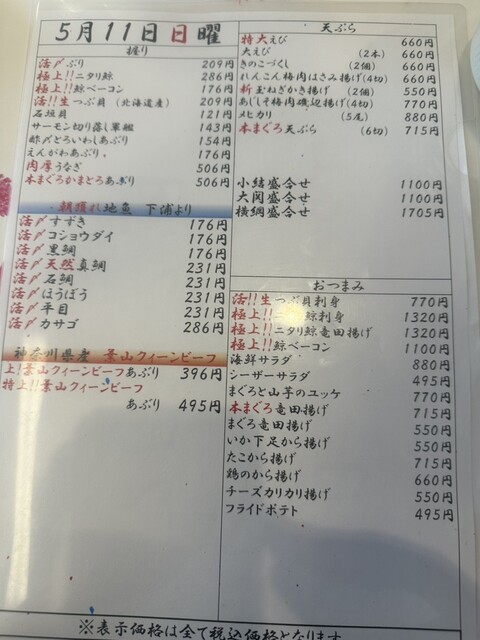 5月11日 日曜
握り
活〆ぶり 209円
極上!!ニタリ鯨 286円
極上!!鯨ベーコン 176円
活!!生つぶ貝(北海道産) 209円
石垣貝 121円
サーモン切り落し軍艦 143円
酢〆とろいわしあぶり 154円
えんがわあぶり. 176円
肉厚うなぎ 506円
本まぐろかまとろあぶり 506円
朝獲れ地魚 下浦より
活〆すずき 176円
活〆コショウダイ 176円
活〆黒鯛 176円
活〆天然真鯛 231円
活〆石鯛 231円
活〆ほうぼう 231円
活〆平目 231円
活〆カサゴ 286円
神奈川県産 葉山クィーンビーフ
上!葉山クィーンビーフあぶり 396円
特上!!葉山クィーンビーフ
あぶり 495円
天ぷら
特大えび 660円
大えび (2本) 660円
きのこづくし (2個) 660円
れんこん梅肉はさみ揚げ(4切) 660円
新玉ねぎかき揚げ (2個) 550円
あじしそ梅肉磯辺揚げ(4切) 770円
メヒカリ (5尾) 880円
本まぐろ天ぷら (6切) 715円
小結盛合せ 1100円
大関盛合せ 1100円
横綱盛合せ 1705円
おつまみ
活!!生つぶ貝刺身 770円
極上!!ニタリ鯨刺身 1320円
極上!!ニタリ鯨竜田揚げ 1320円
極上!!鯨ベーコン 1100円
海鮮サラダ 880円
シーザーサラダ 495円
まぐろと山芋のユッケ 770円
本まぐろ竜田揚げ 715円
まぐろ竜田揚げ 550円
いか下足から揚げ 550円
たこから揚げ 715円
鶏のから揚げ 660円
チーズカリカリ揚げ 550円
フライドポテト 495円
※表示価格は全て税込価格となります